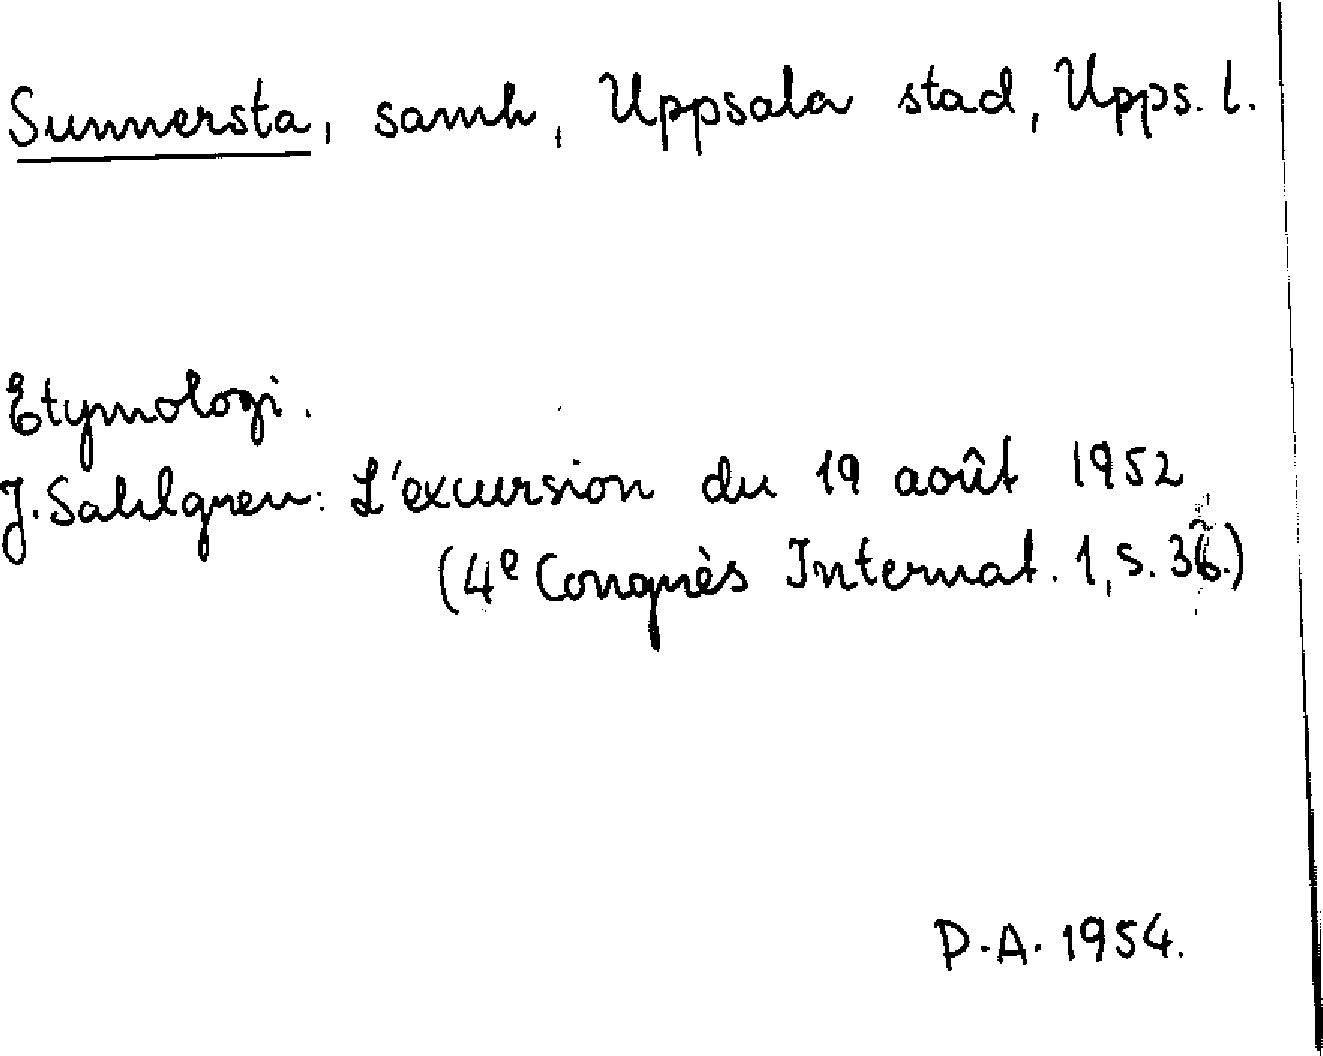 Sunnersta, samh, Uppsala stad, Upps. l.
Etymologi.
J. Sahlgren: L'excursion du 19 août 1952
(4e Congrès Internat. 1, s. 36.)
D.A. 1954.